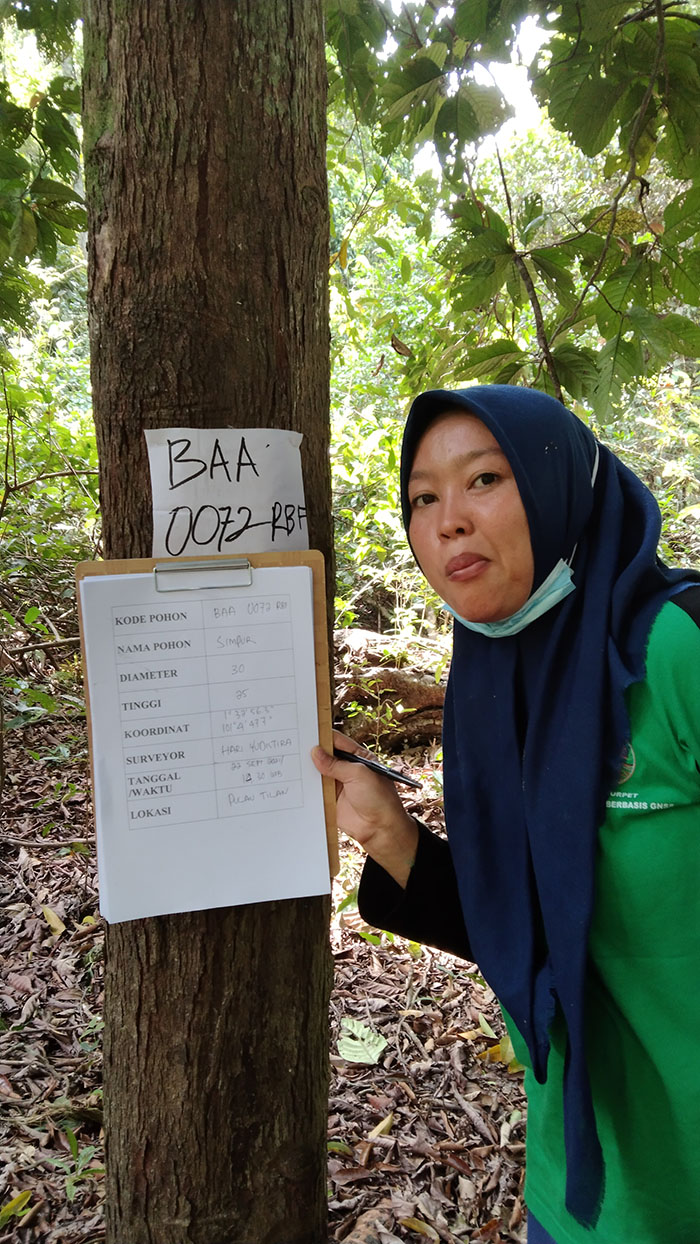 BAA
0072 RBF
KODE POHON BAA 0072 RBF
NAMA POHON SIMPUR
DIAMETER 30
TINGGI 25
KOORDINAT 101°4'47.7"
SURVEYOR HARI YUDISTIRA
TANGGAL 22 SEPT
/WAKTU WIB
LOKASI PULAU TILAN
URPET
BERBASIS GNSS